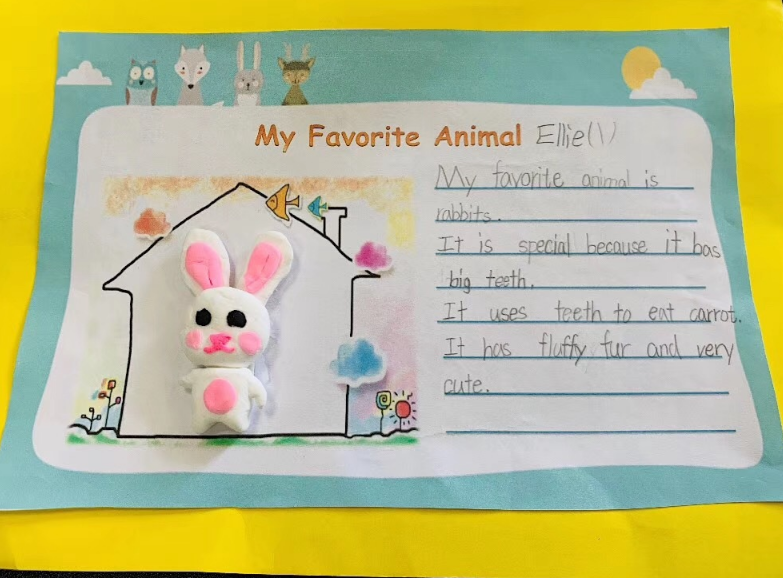 My Favorite Animal Ellie(1)
My favorite animal is
rabbits.
It is special because it has
big teeth.
It uses teeth to eat carrot.
It has fluffy fur and very
cute.